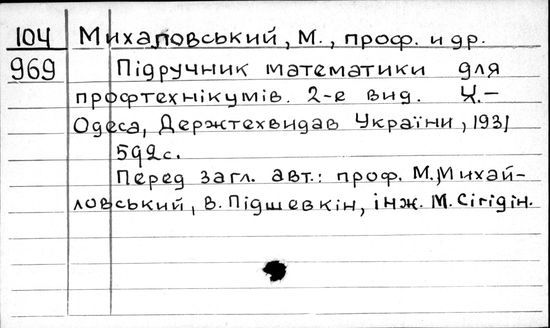 104 Михаловський, М., проф. и др.
969 Підручник математики для
профтехнікумів. 2-е вид. Х.–
Одеса, Держтехвидав України, 1931
592с.
Перед загл. авт.: проф. М.Михай-
ловський, В. Підшевкін, інж. М. Сігідін.